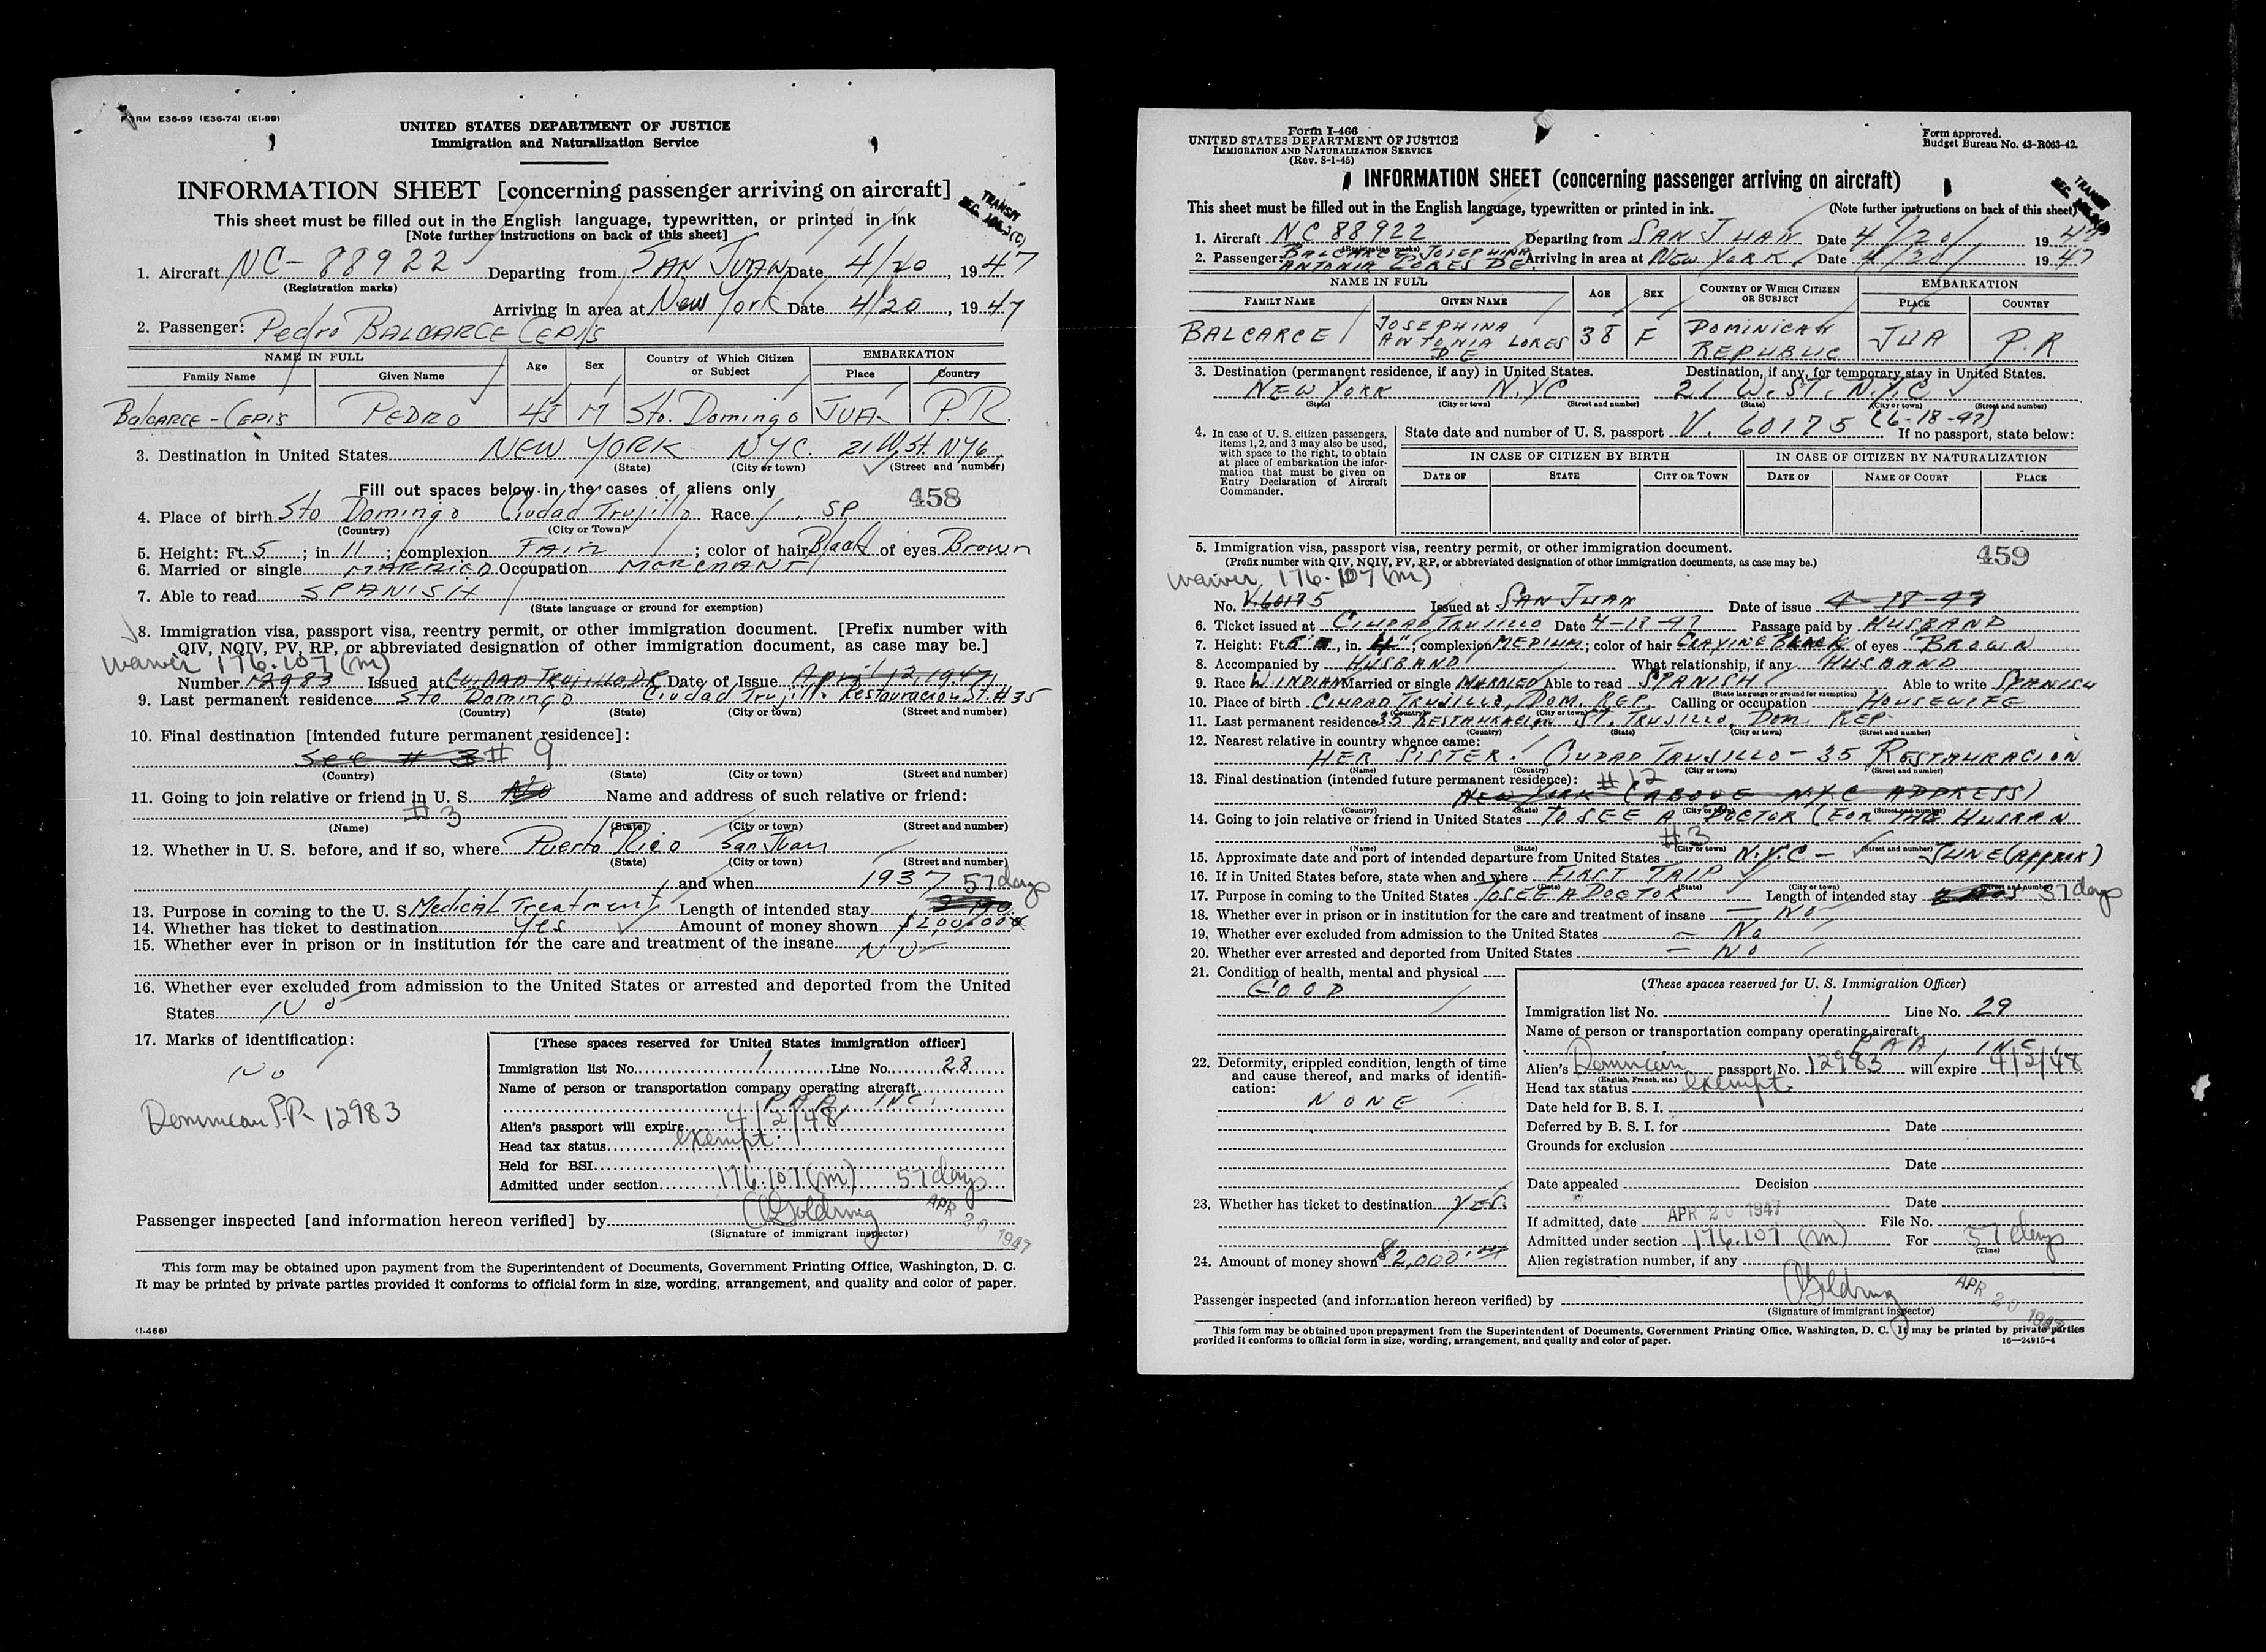 FORM E36-99 (E36-74) (E1-99)
UNITED STATES DEPARTMENT OF JUSTICE
Immigration and Naturalization Service
INFORMATION SHEET [concerning passenger arriving on aircraft]
TRANSIT
This sheet must be filled out in the English language, typewritten, or printed in ink
[Note further instructions on back of this sheet]
1. Aircraft NC-88922 Departing from SAN JUAN Date 4/20, 1947
(Registration marks)
Arriving in area at New York Date 4/20, 1947
2. Passenger: Pedro BALCARCE CEPIS
NAME IN FULL Age Sex Country of Which Citizen or Subject EMBARKATION
Family Name Given Name Place Country
Balcarce-Cepis PEDRO 45 M Sto. Domingo JUA P.R.
3. Destination in United States NEW YORK NYC. 21 W. St. NYC
(State) (City or town) (Street and number)
Fill out spaces below in the cases of aliens only 458
4. Place of birth Sto Domingo Ciudad Trujillo Race SP
(Country) (City or Town)
5. Height: Ft. 5; in 11; complexion FAIR; color of hair Black of eyes Brown
6. Married or single MARRIED Occupation MERCHANT
7. Able to read SPANISH
(State language or ground for exemption)
8. Immigration visa, passport visa, reentry permit, or other immigration document. [Prefix number with
QIV, NQIV, PV, RP, or abbreviated designation of other immigration document, as case may be.]
waiver 176.107(m)
Number 12983 Issued at Ciudad Trujillo DR Date of Issue April 12 1947
9. Last permanent residence Sto Domingo Ciudad Trujillo Restauracion St. #35
(Country) (State) (City or town) (Street and number)
10. Final destination [intended future permanent residence]:
See # 3 # 9
(Country) (State) (City or town) (Street and number)
11. Going to join relative or friend in U. S. Name and address of such relative or friend:
# 3
(Name) (State) (City or town) (Street and number)
12. Whether in U. S. before, and if so, where Puerto Rico San Juan
(State) (City or town) (Street and number)
and when 1937 57 days
13. Purpose in coming to the U. S. Medical Treatment Length of intended stay
14. Whether has ticket to destination Yes Amount of money shown
15. Whether ever in prison or in institution for the care and treatment of the insane NO
16. Whether ever excluded from admission to the United States or arrested and deported from the United
States No
17. Marks of identification:
No
Dominican P.P. 12983
[These spaces reserved for United States immigration officer]
Immigration list No. 1 Line No. 28
Name of person or transportation company operating aircraft
P A A, INC.
Alien's passport will expire 4/2/48
Head tax status exempt
Held for BSI
Admitted under section 176.107(m) 57 days
Passenger inspected [and information hereon verified] by Goldring APR 20 1947
(Signature of immigrant inspector)
This form may be obtained upon payment from the Superintendent of Documents, Government Printing Office, Washington, D. C.
It may be printed by private parties provided it conforms to official form in size, wording, arrangement, and quality and color of paper.
(I-466)
Form I-466
UNITED STATES DEPARTMENT OF JUSTICE
IMMIGRATION AND NATURALIZATION SERVICE
(Rev. 8-1-45)
Form approved.
Budget Bureau No. 43-R063-42.
INFORMATION SHEET (concerning passenger arriving on aircraft)
TRANSIT
This sheet must be filled out in the English language, typewritten or printed in ink. (Note further instructions on back of this sheet)
1. Aircraft NC 88922 Departing from SAN JUAN Date 4/20/ 1947
(Registration marks)
2. Passenger: BALCARCE JOSEPHINA ANTONIA LORES DE Arriving in area at NEW YORK Date 4/20/ 1947
NAME IN FULL AGE SEX COUNTRY OF WHICH CITIZEN OR SUBJECT EMBARKATION
FAMILY NAME GIVEN NAME PLACE COUNTRY
BALCARCE JOSEPHINA ANTONIA LORES DE 38 F DOMINICAN REPUBLIC JUA P.R
3. Destination (permanent residence, if any) in United States. Destination, if any, for temporary stay in United States.
NEW YORK N.Y.C 21 W. ST. N.Y.C
(State) (City or town) (Street and number) (State) (City or town) (Street and number)
4. In case of U. S. citizen passengers, items 1, 2, and 3 may also be used, with space to the right, to obtain at place of embarkation the information that must be given on Entry Declaration of Aircraft Commander.
State date and number of U. S. passport V. 60175 (6-18-47) If no passport, state below:
IN CASE OF CITIZEN BY BIRTH IN CASE OF CITIZEN BY NATURALIZATION
DATE OF STATE CITY OR TOWN DATE OF NAME OF COURT PLACE
5. Immigration visa, passport visa, reentry permit, or other immigration document. 459
(Prefix number with QIV, NQIV, PV, RP, or abbreviated designation of other immigration documents, as case may be.)
waiver 176.107(m)
No. V.60175 Issued at SAN JUAN Date of issue 4-18-47
6. Ticket issued at CIUDAD TRUJILLO Date 4-18-47 Passage paid by HUSBAND
7. Height: Ft. 5, in. 4"; complexion MEDIUM; color of hair GRAYING BLACK of eyes BROWN
8. Accompanied by HUSBAND What relationship, if any HUSBAND
9. Race W INDIAN Married or single MARRIED Able to read SPANISH Able to write SPANISH
(State language or ground for exemption)
10. Place of birth CIUDAD TRUJILLO, DOM. REP. Calling or occupation HOUSEWIFE
(Country) (City or town)
11. Last permanent residence 35 RESTAURACION ST. TRUJILLO, DOM. REP
(Country) (State) (City or town) (Street and number)
12. Nearest relative in country whence came:
HER SISTER. CIUDAD TRUJILLO - 35 RESTAURACION
(Name) (Country) (City or town) (Street and number)
13. Final destination (intended future permanent residence): # 12
NEW YORK (ABOVE NYC ADDRESS)
(Country) (State) (City or town) (Street and number)
14. Going to join relative or friend in United States TO SEE A DOCTOR (FOR THE HUSBAN
# 3
(Name) (State) (City or town) (Street and number)
15. Approximate date and port of intended departure from United States N.Y.C - JUNE (APPROX)
16. If in United States before, state when and where FIRST TRIP
(Date) (State) (City or town) (Street and number)
17. Purpose in coming to the United States TO SEE A DOCTOR Length of intended stay 57 days
18. Whether ever in prison or in institution for the care and treatment of insane — NO
19. Whether ever excluded from admission to the United States — No
20. Whether ever arrested and deported from United States — No
21. Condition of health, mental and physical
GOOD
22. Deformity, crippled condition, length of time and cause thereof, and marks of identification:
NONE
23. Whether has ticket to destination YES.
24. Amount of money shown $2,000
(These spaces reserved for U. S. Immigration Officer)
Immigration list No. 1 Line No. 29
Name of person or transportation company operating aircraft
P A A, INC.
Alien's Dominican passport No. 12983 will expire 4/2/48
(English, French, etc.)
Head tax status exempt
Date held for B. S. I.
Deferred by B. S. I. for Date
Grounds for exclusion
Date
Date appealed Decision
Date
If admitted, date APR 20 1947 File No.
Admitted under section 176.107 (m) For 57 days
(Time)
Alien registration number, if any
Passenger inspected (and information hereon verified) by Goldring APR 20 1947
(Signature of immigrant inspector)
This form may be obtained upon prepayment from the Superintendent of Documents, Government Printing Office, Washington, D. C. It may be printed by private parties
provided it conforms to official form in size, wording, arrangement, and quality and color of paper. 16—24915-4